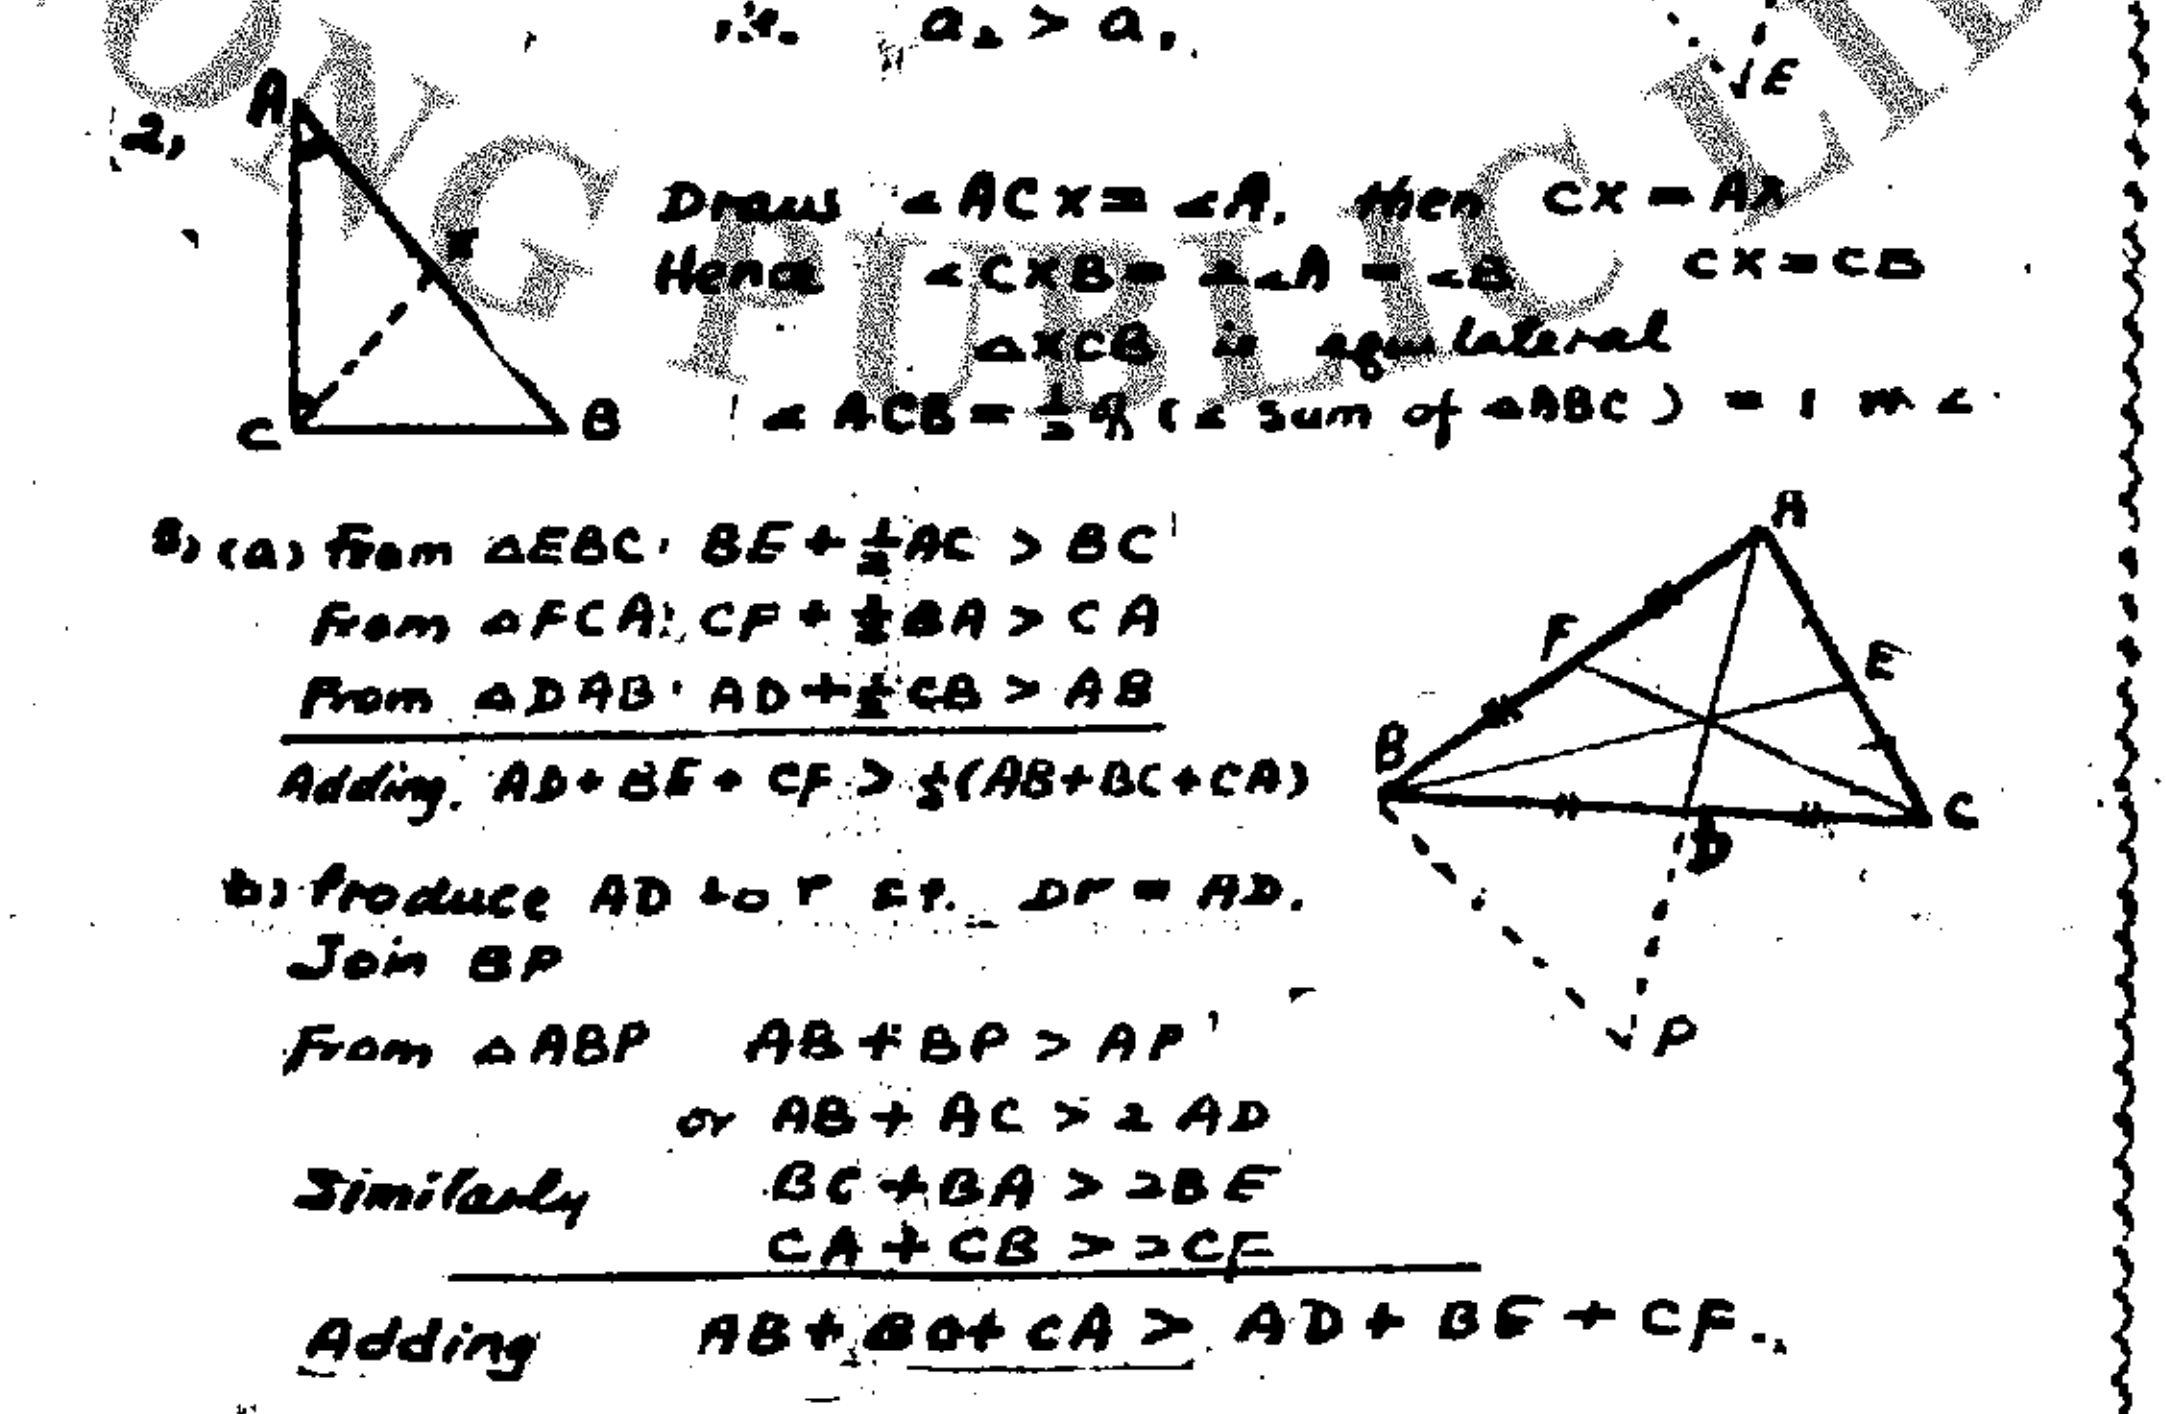 i.e. a₂ > a₁.
E
2, A
X
C B
Draw ∠ACX = ∠A, then CX = AX
Hence ∠CXB = 2∠A = ∠B CX = CB
△XCB is equilateral
∠ACB = ½ of (∠ sum of △ABC) = 1 rt ∠.
3, (a) From △EBC, BE + ½AC > BC
From △FCA, CF + ½BA > CA
From △DAB, AD + ½CB > AB
Adding, AD + BE + CF > ½(AB + BC + CA)
A
F E
B C
D
P
b) Produce AD to P s.t. DP = AD.
Join BP
From △ABP AB + BP > AP
or AB + AC > 2AD
Similarly BC + BA > 2BE
CA + CB > 2CF
Adding AB + BC + CA > AD + BE + CF.
ONG PUBLIC LIB